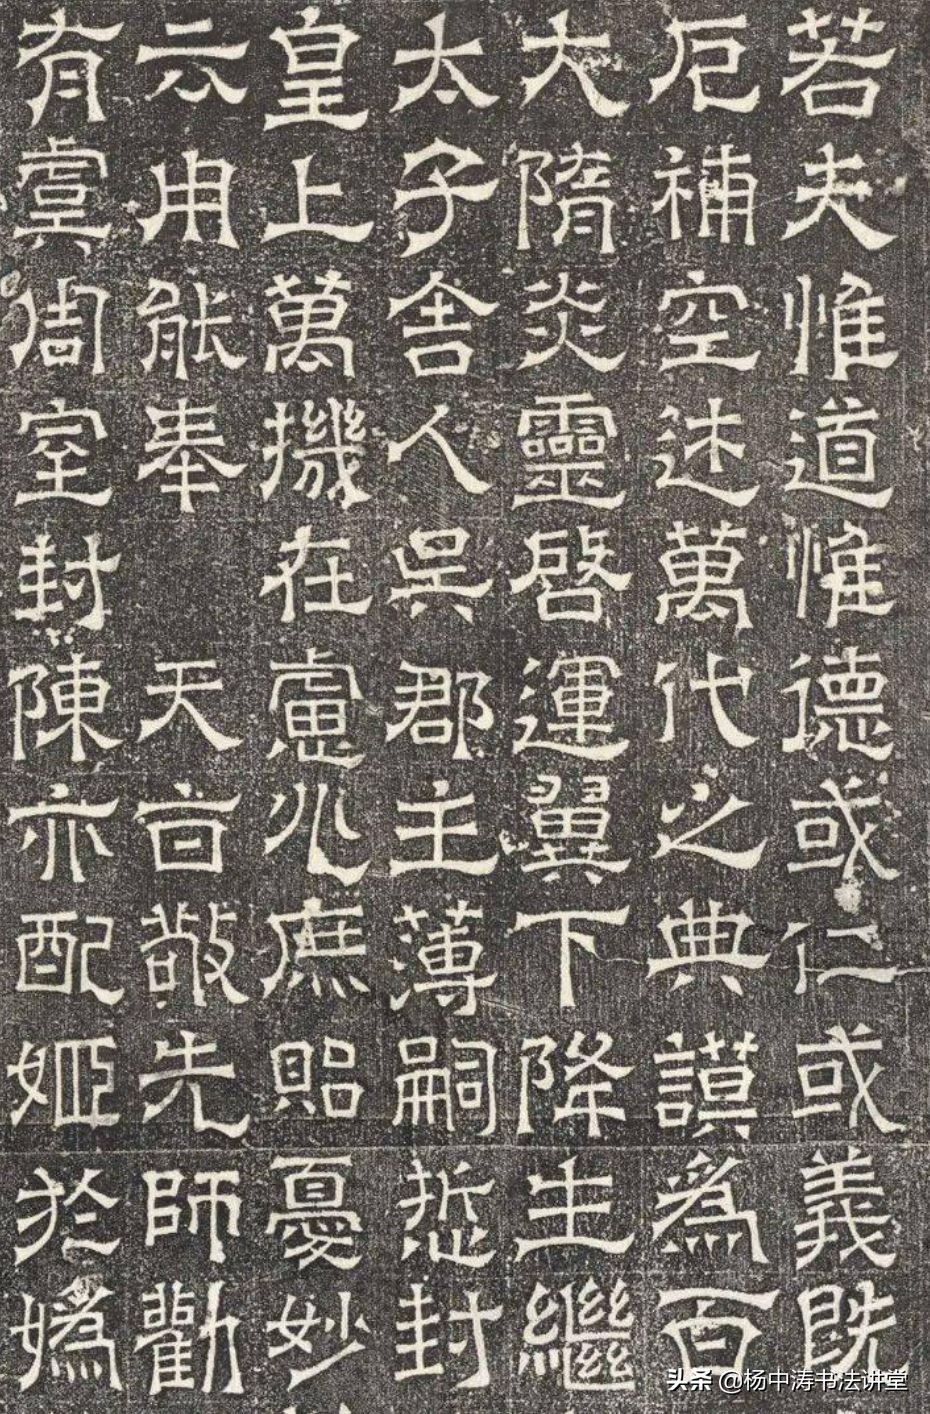 若夫惟道惟德或仁或義既
厄補空述萬代之典謨爲百
大隋炎靈啓運翼下降生繼
太子舎人吳郡主薄嗣悊封
皇上萬機在慮兆庶貽憂妙
云用能奉 天旨敬先師勸
有虞周室封陳亦配姬於嬀
头条 @杨中涛书法讲堂